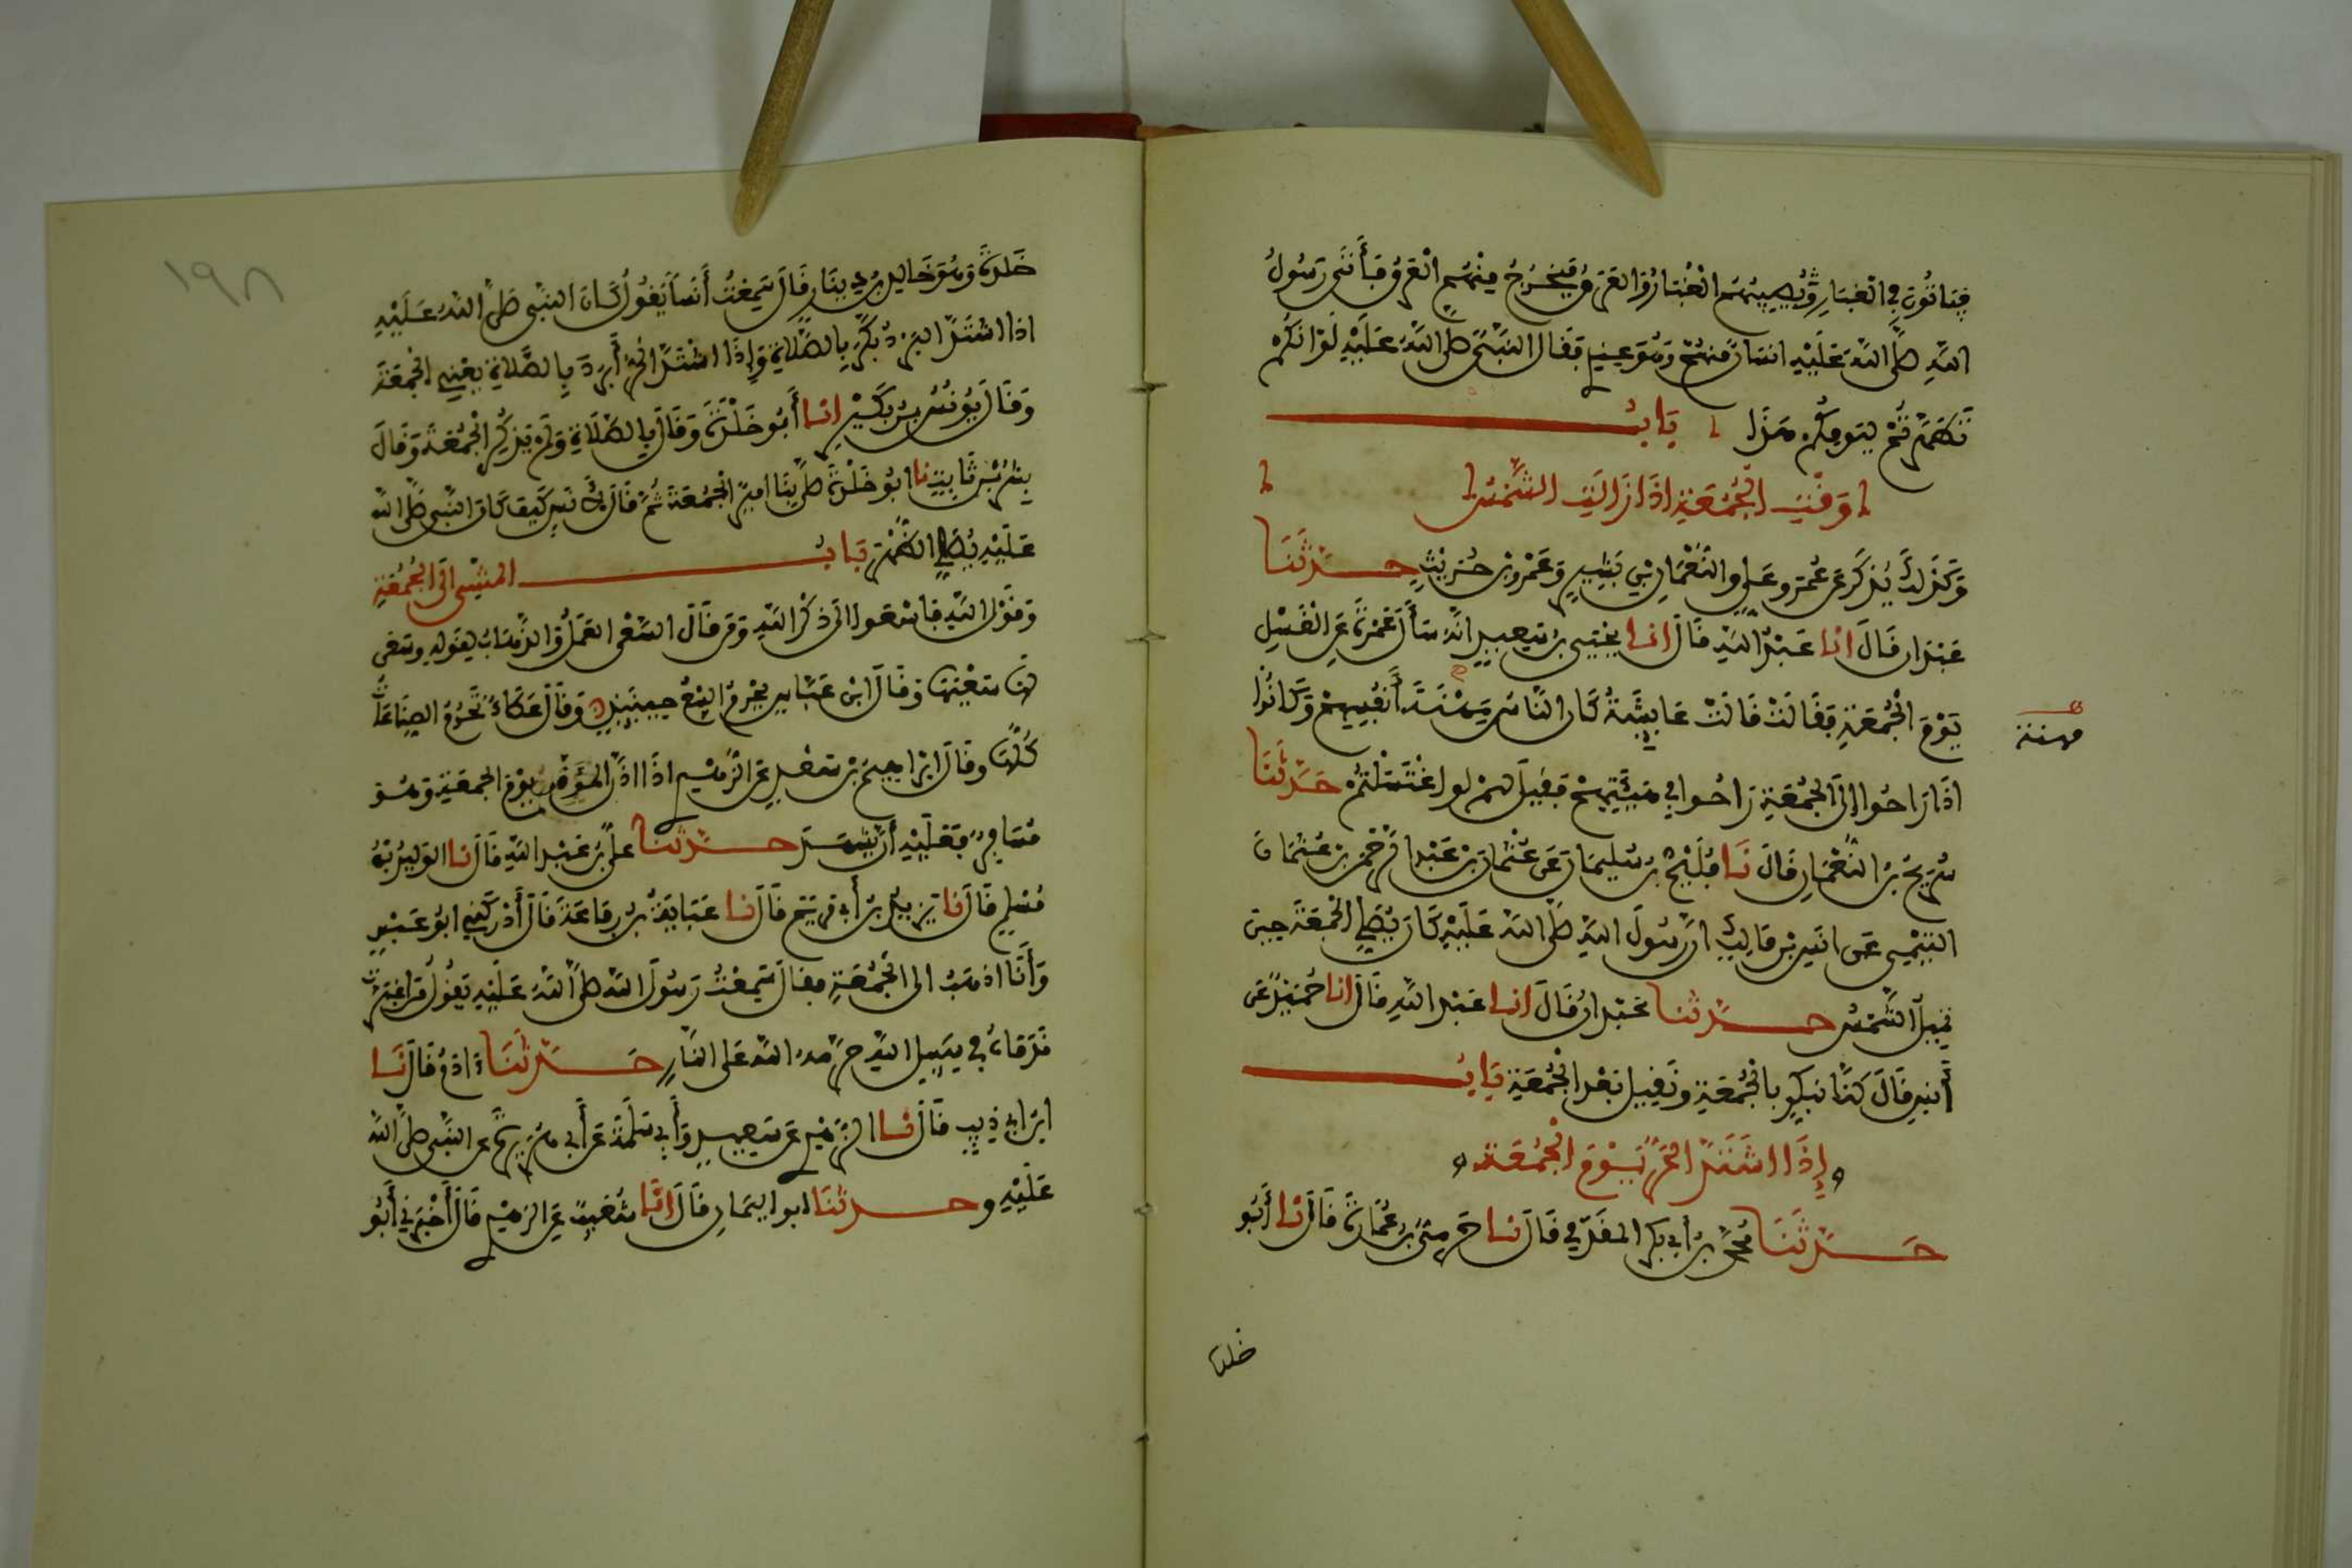 فياتون في الغبار ويصيبهم الغبار والعرق فيخرج منهم العرق فأتى رسول
الله صلى الله عليه انسان منهم وهو عندي فقال النبي صلى الله عليه لو انكم
تطهرتم ليومكم هذا باب
وقت الجمعة اذا زالت الشمس
وكذلك يذكر عن عمر وعلي والنعمان بن بشير وعمرو بن حريث حدثنا
عبدان قال انا عبد الله قال انا يحيى بن سعيد انه سأل عمرة عن الغسل
يوم الجمعة فقالت قالت عايشة كان الناس مهنة أنفسهم وكانوا
مهنة
اذا راحوا إلى الجمعة راحوا في هيئتهم فقيل لهم لو اغتسلتم حدثنا
سريج بن النعمان قال نا فليح بن سليمان عن عثمان بن عبد الرحمن بن عثمان
التيمي عن انس بن مالك ان رسول الله صلى الله عليه كان يصلي الجمعة حين
تميل الشمس حدثنا عبدان قال انا عبد الله قال انا حميد عن
أنس قال كنا نبكر بالجمعة ونقيل بعد الجمعة باب
إذا اشتد الحر يوم الجمعة
حدثنا محمد بن أبي بكر المقدمي قال نا حرمي بن عمارة قال نا أبو
خلدة
١٩٨
خلدة وهو خالد بن دينار قال سمعت أنسا يقول كان النبي صلى الله عليه
اذا اشتد البرد بكر بالصلاة وإذا اشتد الحر أبرد بالصلاة يعني الجمعة
وقال يونس بن بكير انا أبو خلدة وقال بالصلاة ولم يذكر الجمعة وقال
بشر بن ثابت نا ابو خلدة صلى بنا امير الجمعة ثم قال لأنس كيف كان النبي صلى الله
عليه يصلي الظهر باب المشي الى الجمعة
وقول الله فاسعوا الى ذكر الله ومن قال السعي العمل والذهاب لقوله وسعى
لها سعيها وقال ابن عباس يحرم البيع حينئذ وقال عطاء تحرم الصناعات
كلها وقال ابراهيم بن سعد عن الزهري اذا اذن المؤذن يوم الجمعة وهو
مسافر فعليه أن يشهد حدثنا علي بن عبد الله قال نا الوليد بن
مسلم قال نا يزيد بن أبي مريم قال نا عباية بن رفاعة قال أدركني ابو عبس
وأنا اذهب الى الجمعة فقال سمعت رسول الله صلى الله عليه يقول من اغبرت
قدماه في سبيل الله حرمه الله على النار حدثنا ادم قال نا
ابن أبي ذيب قال نا الزهري عن سعيد وأبي سلمة عن أبي هريرة عن النبي صلى الله
عليه وحدثنا ابو اليمان قال انا شعيب عن الزهري قال أخبرني أبو